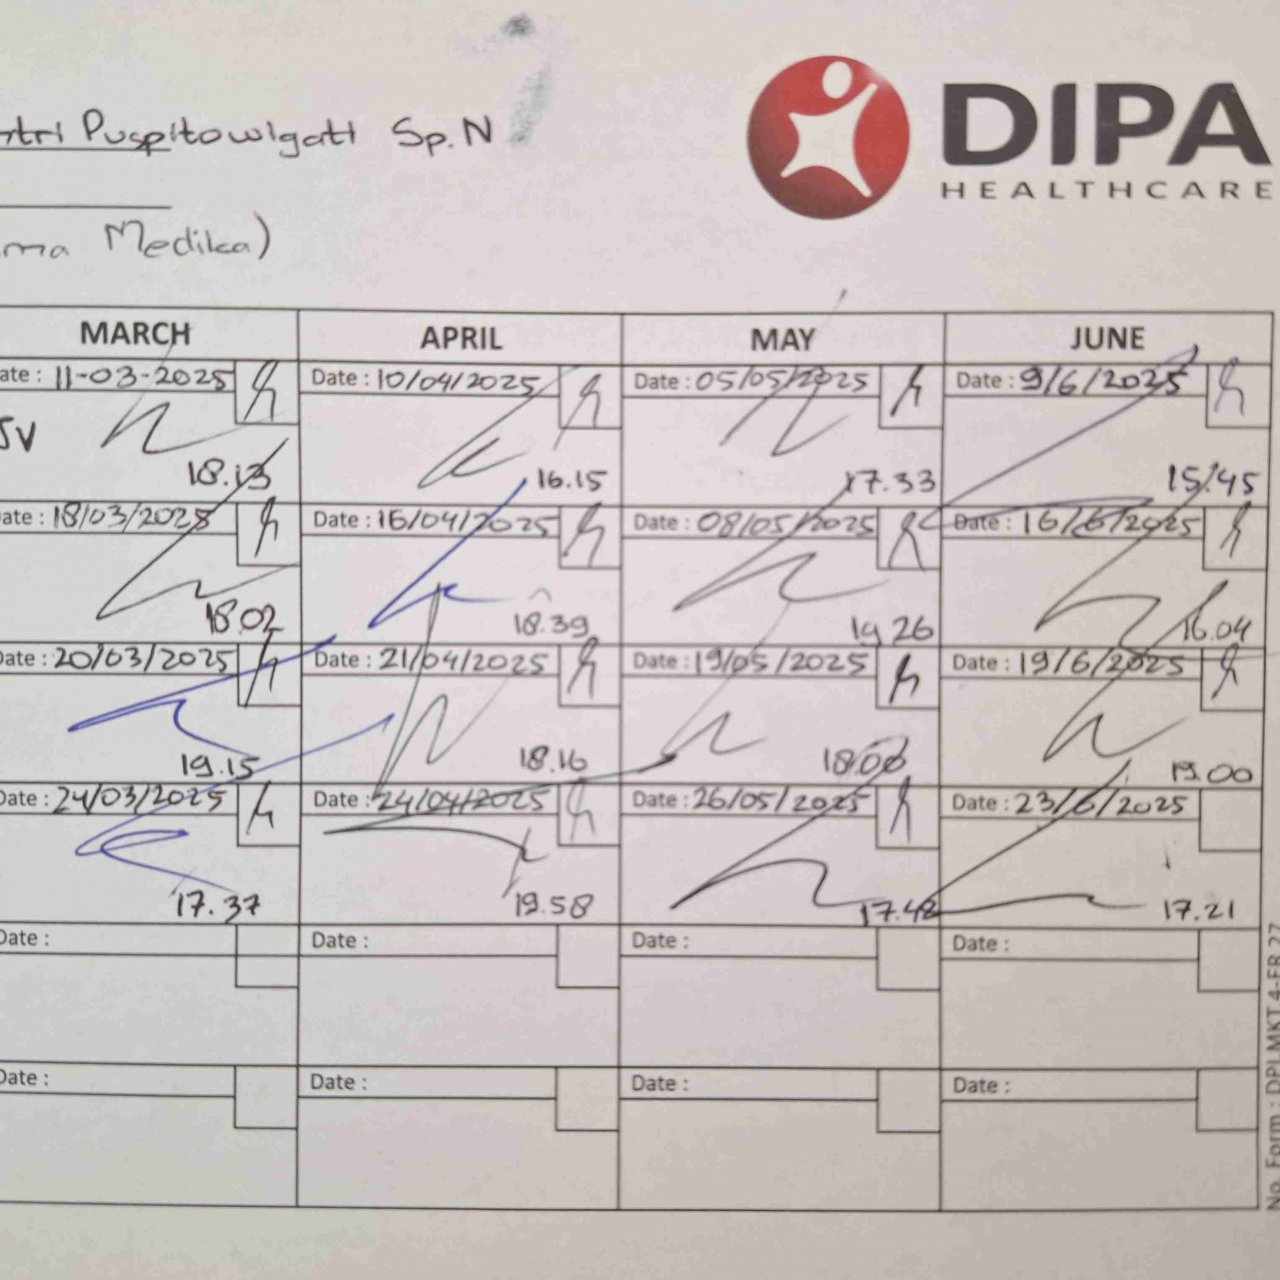 ntri Puspitowigati Sp.N
DIPA
HEALTHCARE
ma Medika)
MARCH APRIL MAY JUNE
ate : 11-03-2025 Date : 10/04/2025 Date : 05/05/2025 Date : 9/6/2025
JV
18.13 16.15 17.33 15.45
ate : 18/03/2025 Date : 16/04/2025 Date : 08/05/2025 Date : 16/6/2025
18.02 18.39 19 26 16.04
Date : 20/03/2025 Date : 21/04/2025 Date : 19/05/2025 Date : 19/6/2025
19.15 18.16 18.00 19.00
Date : 24/03/2025 Date : 24/04/2025 Date : 26/05/2025 Date : 23/6/2025
17.37 19.58 17.48 17.21
Date : Date : Date : Date :
Date : Date : Date : Date :
No. Form : DPI.MKT.4-FR.27